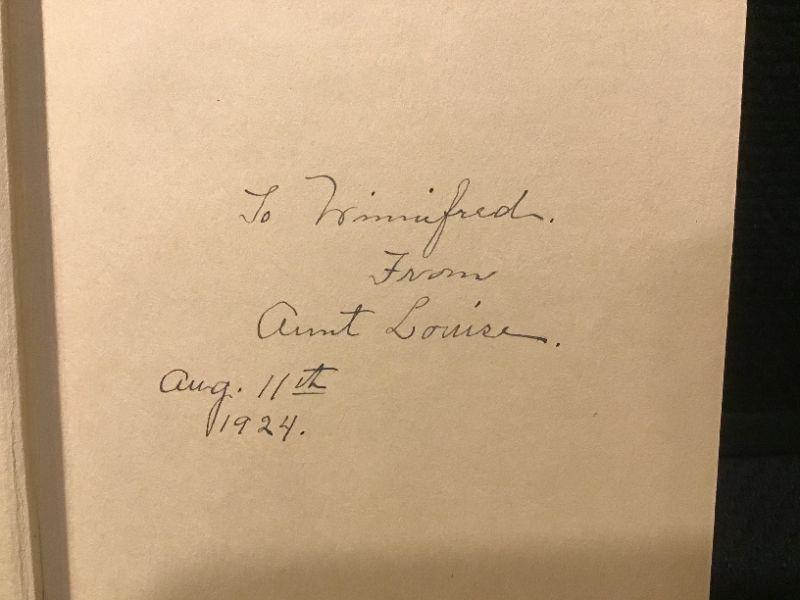 To Winnifred.
From
Aunt Louise.
Aug. 11th
1924.